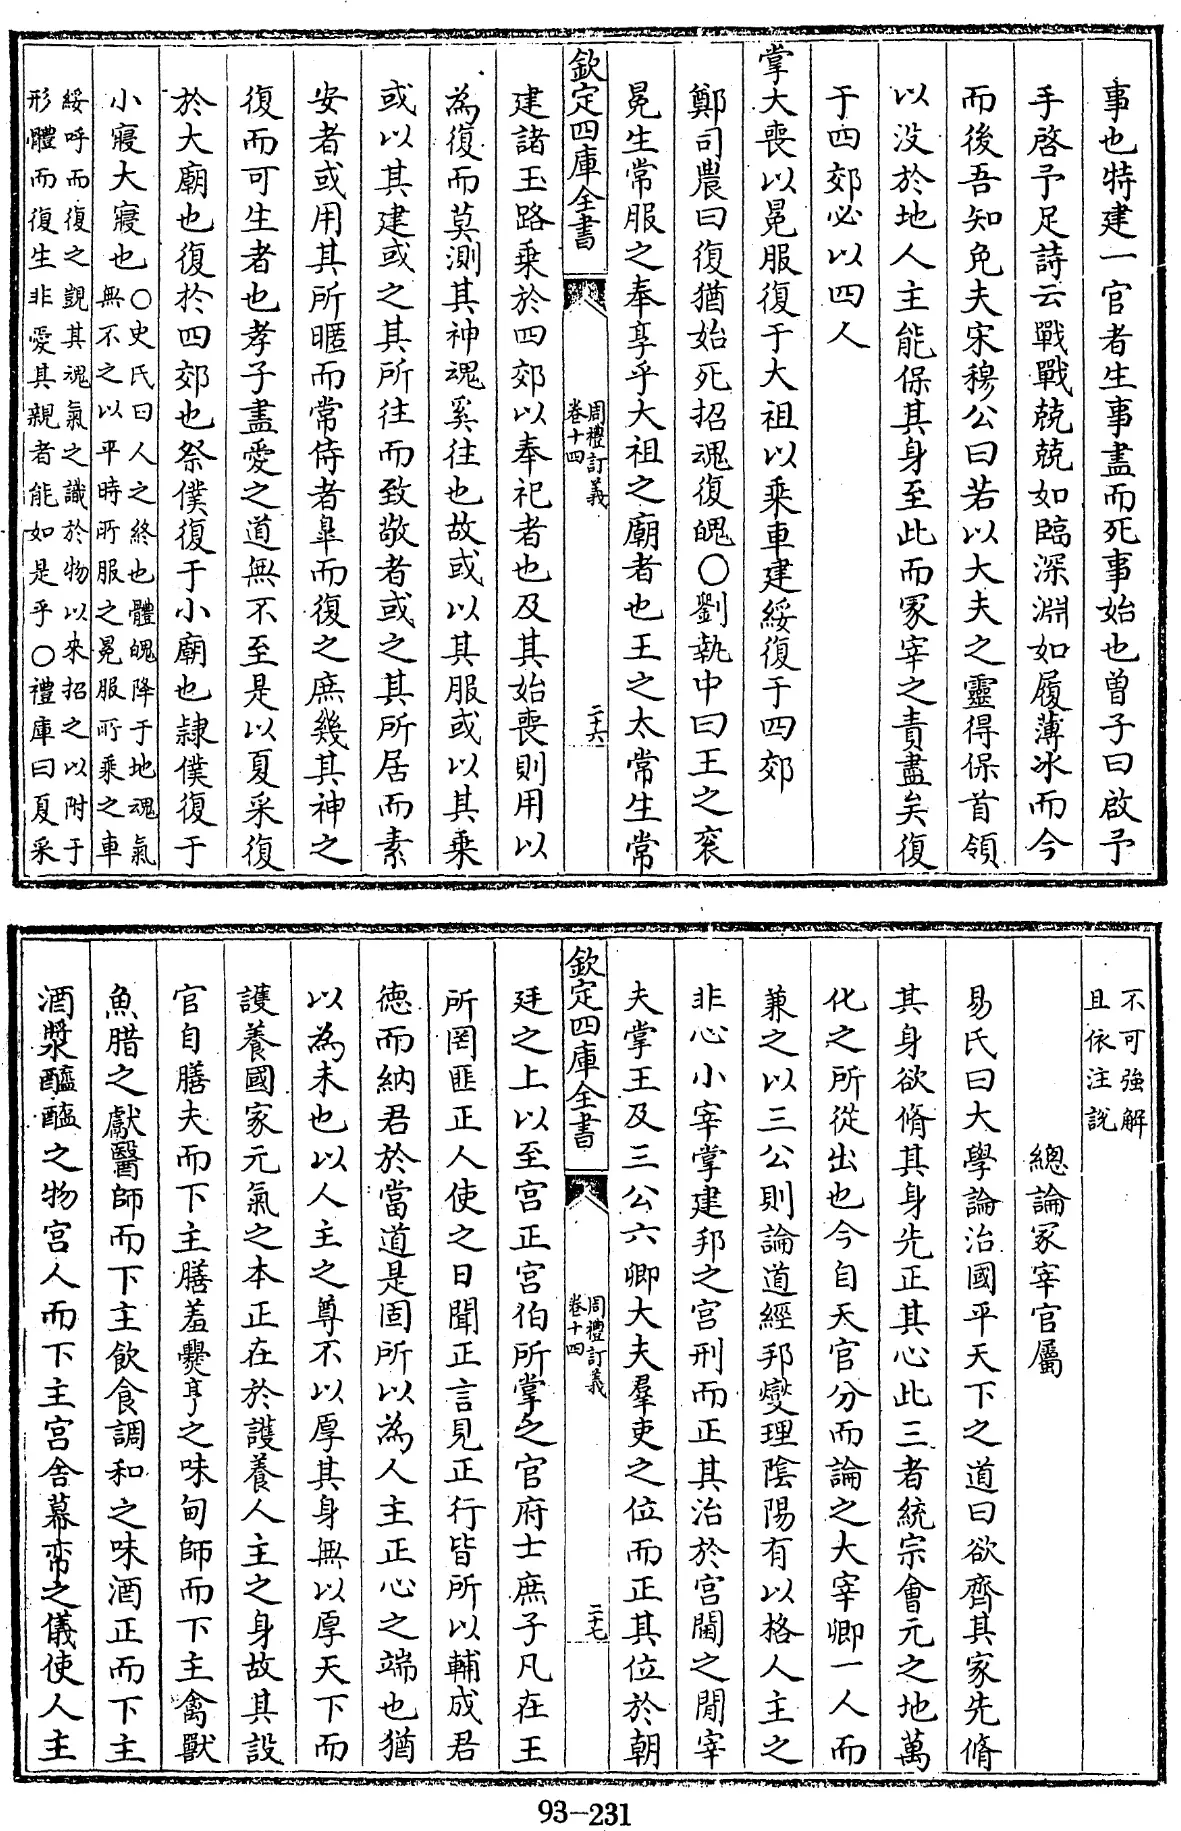 事也特建一官者生事盡而死事始也曽子曰啟予
手啓予足詩云戰戰兢兢如臨深淵如履薄氷而今
而後吾知免夫宋穆公曰若以大夫之靈得保首領
以没於地人主能保其身至此而冢宰之責盡矣復
于四郊必以四人
掌大喪以冕服復于大祖以乘車建綏復于四郊
鄭司農曰復猶始死招魂復魄○劉執中曰王之衮
冕生常服之奉享乎大祖之廟者也王之太常生常
欽定四庫全書
周禮訂義
卷十四
二十六
建諸玉路乗於四郊以奉祀者也及其始喪則用以
為復而莫測其神魂奚往也故或以其服或以其乗
或以其建或之其所往而致敬者或之其所居而素
安者或用其所暱而常侍者臯而復之庶幾其神之
復而可生者也孝子盡愛之道無不至是以夏采復
於大廟也復於四郊也祭僕復于小廟也隷僕復于
小寢大寢也○史氏曰人之終也體魄降于地魂氣
無不之以平時所服之冕服所乗之車
綏呼而復之覬其魂氣之識於物以來招之以附于
形體而復生非愛其親者能如是乎○禮庫曰夏采
不可強解
且依注說
總論冢宰官屬
易氏曰大學論治國平天下之道曰欲齊其家先脩
其身欲脩其身先正其心此三者統宗會元之地萬
化之所從出也今自天官分而論之大宰卿一人而
兼之以三公則論道經邦爕理陰陽有以格人主之
非心小宰掌建邦之宫刑而正其治於宫闈之間宰
夫掌王及三公六卿大夫羣吏之位而正其位於朝
欽定四庫全書
周禮訂義
卷十四
二十七
廷之上以至宫正宫伯所掌之官府士庶子凡在王
所罔匪正人使之日聞正言見正行皆所以輔成君
徳而納君於當道是固所以為人主正心之端也猶
以為未也以人主之尊不以厚其身無以厚天下而
護養國家元氣之本正在於護養人主之身故其設
官自膳夫而下主膳羞爨亨之味甸師而下主禽獸
魚腊之獻醫師而下主飲食調和之味酒正而下主
酒漿醯醢之物宫人而下主宫舍幕帟之儀使人主
93-231